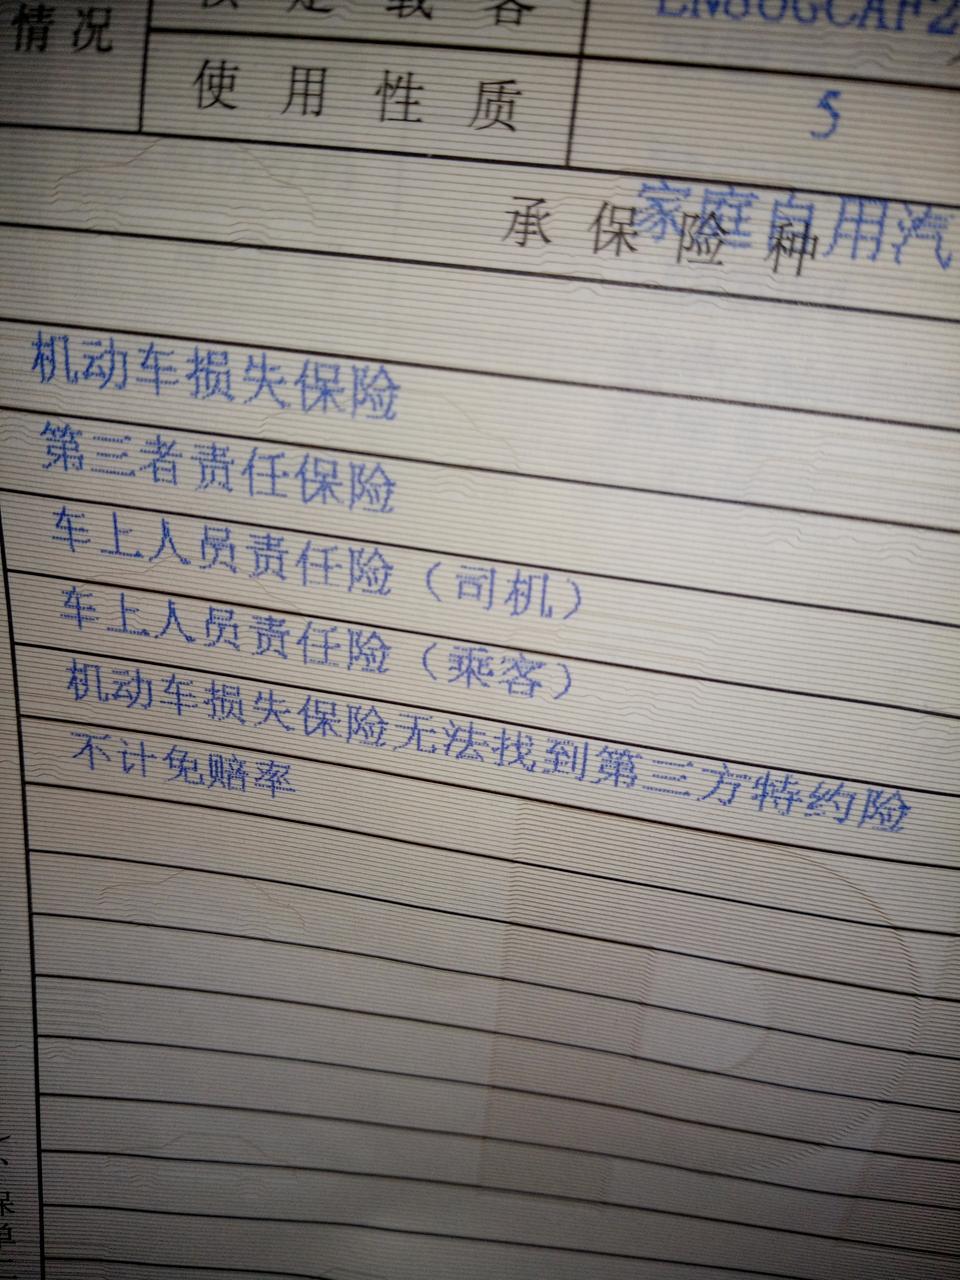 定 载 客
情况
使 用 性 质
5
家庭自用汽
承 保 险 种
机动车损失保险
第三者责任保险
车上人员责任险（司机）
车上人员责任险（乘客）
机动车损失保险无法找到第三方特约险
不计免赔率